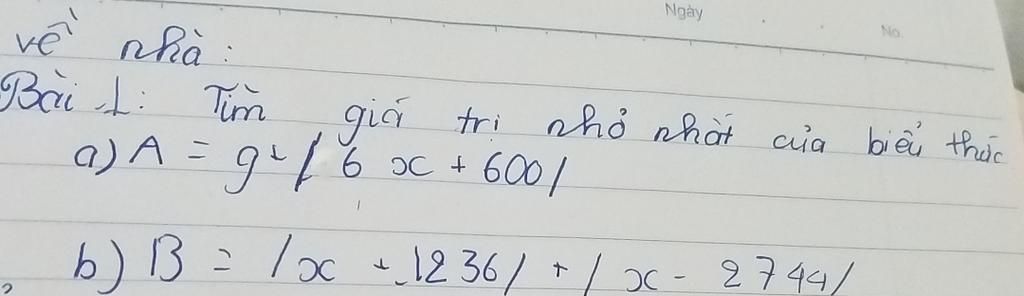 Ngày
No.
về nhà:
Bài 1: Tìm giá trị nhỏ nhất của biểu thức
a) A = 9 + / 6 x + 600 /
b) B = / x + 1236 / + / x - 2744 /